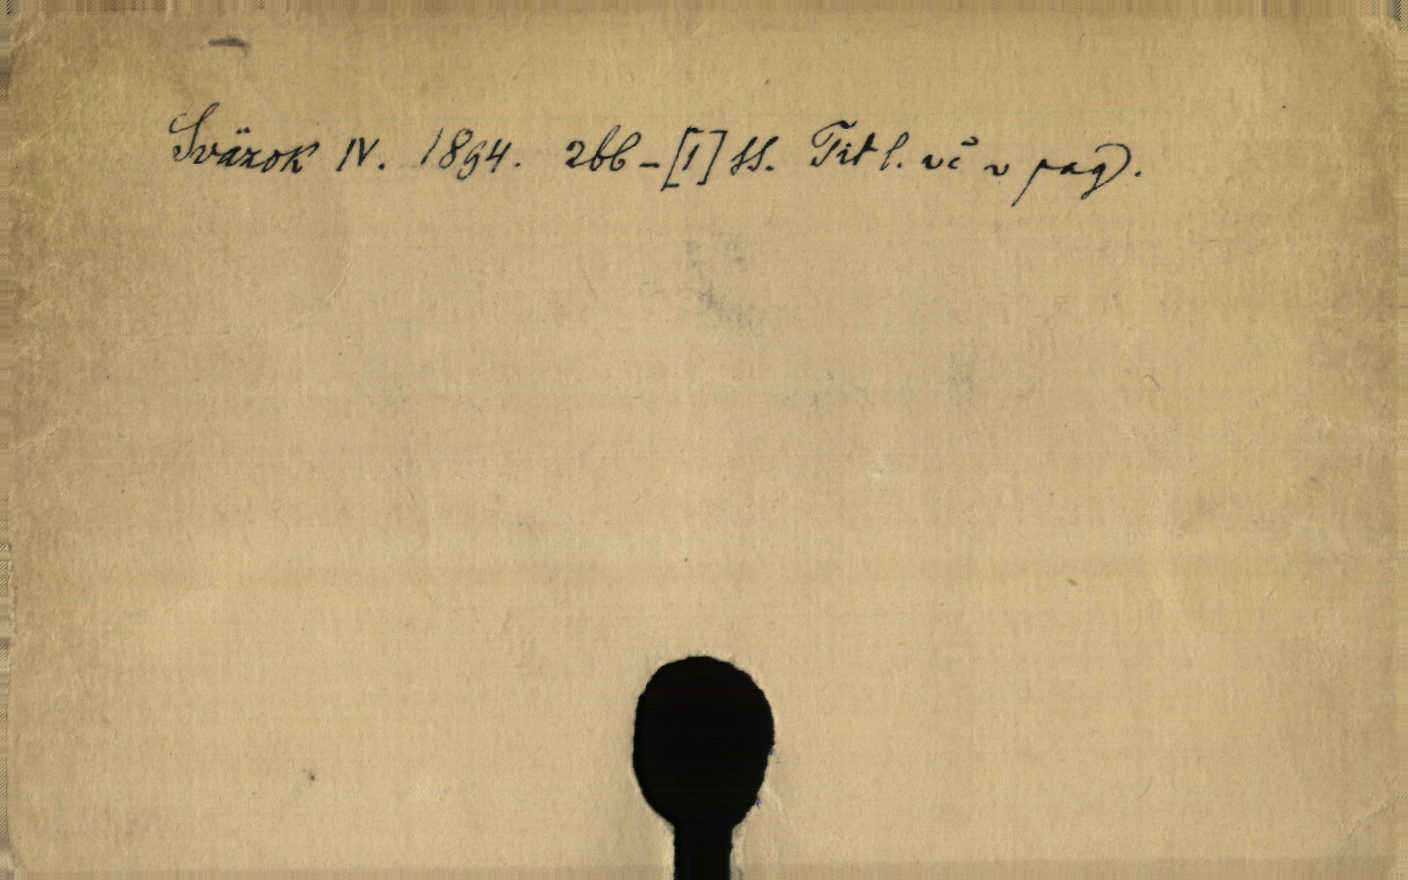 Sväzok IV. 1894. 266-[1] ss. Titl. vč v pag).